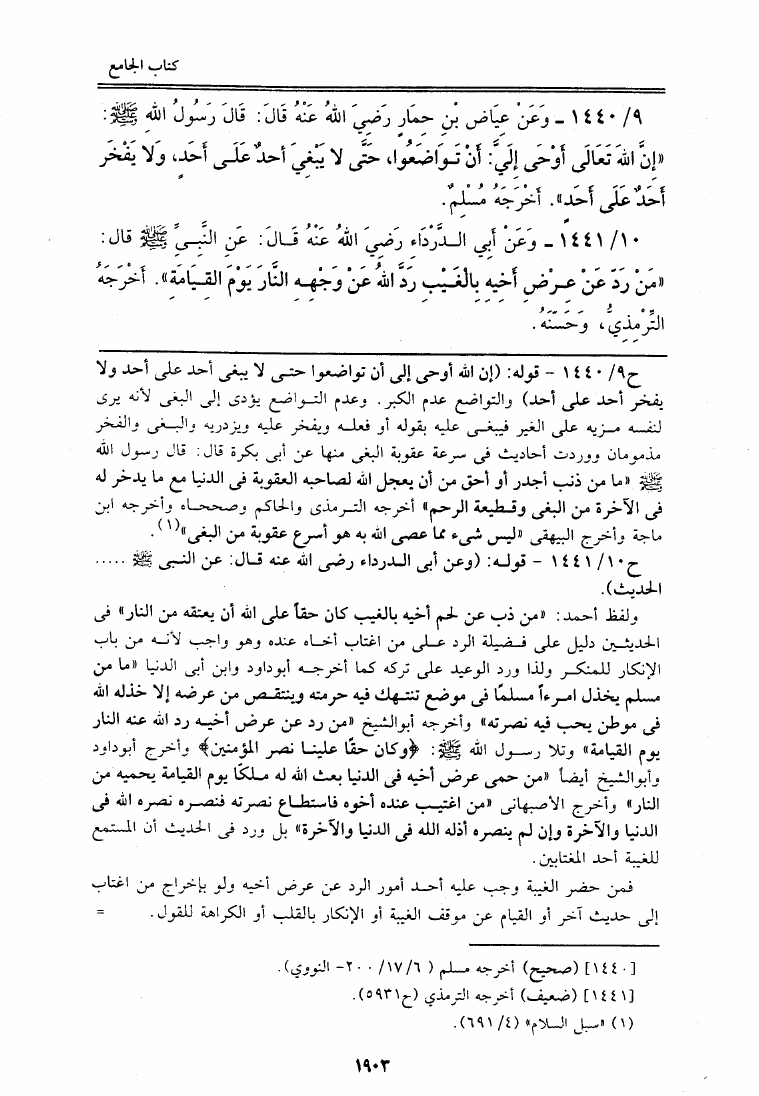 كتاب الجامع
١٤٤٠/٩ ـ وَعَنْ عِيَاضِ بْنِ حِمَارٍ رَضِيَ اللهُ عَنْهُ قَالَ: قَالَ رَسُولُ اللهِ ﷺ:
«إِنَّ اللهَ تَعَالَى أَوْحَى إِلَيَّ: أَنْ تَوَاضَعُوا، حَتَّى لا يَبْغِيَ أَحدٌ عَلَى أَحَدٍ، وَلا يَفْخَر
أَحَدٌ عَلَى أَحَدٍ». أَخْرَجَهُ مُسْلِمٌ.
١٤٤١/١٠ ـ وَعَنْ أَبِي الدَّرْدَاءِ رَضِيَ اللهُ عَنْهُ قَالَ: عَنِ النَّبِيِّ ﷺ قال:
«مَنْ رَدَّ عَنْ عِرْضِ أَخِيهِ بِالْغَيْبِ رَدَّ اللهُ عَنْ وَجْهِهِ النَّارَ يَوْمَ القِيَامَةِ». أَخْرَجَهُ
التِّرْمِذِيُّ، وَحَسَّنَهُ.
ح١٤٤٠/٩ - قوله: (إن الله أوحى إلى أن تواضعوا حتى لا يبغى أحد على أحد ولا
يفخر أحد على أحد) والتواضع عدم الكبر. وعدم التواضع يؤدى إلى البغى لأنه يرى
لنفسه مزيه على الغير فيبغى عليه بقوله أو فعله ويفخر عليه ويزدريه والبغى والفخر
مذمومان ووردت أحاديث فى سرعة عقوبة البغى منها عن أبى بكرة قال: قال رسول الله
ﷺ «ما من ذنب أجدر أو أحق من أن يعجل الله لصاحبه العقوبة فى الدنيا مع ما يدخر له
فى الآخرة من البغى وقطيعة الرحم» أخرجه الترمذى والحاكم وصححاه وأخرجه ابن
ماجة وأخرج البيهقى «ليس شىء مما عصى الله به هو أسرع عقوبة من البغى»(١).
ح١٤٤١/١٠ - قوله: (وعن أبى الدرداء رضى الله عنه قال: عن النبى ﷺ .....
الحديث).
ولفظ أحمد: «من ذب عن لحم أخيه بالغيب كان حقاً على الله أن يعتقه من النار» فى
الحديثين دليل على فضيلة الرد على من اغتاب أخاه عنده وهو واجب لأنه من باب
الإنكار للمنكر ولذا ورد الوعيد على تركه كما أخرجه أبوداود وابن أبى الدنيا «ما من
مسلم يخذل امرءاً مسلمًا فى موضع تنتهك فيه حرمته وينتقص من عرضه إلا خذله الله
فى موطن يحب فيه نصرته» وأخرجه أبوالشيخ «من رد عن عرض أخيه رد الله عنه النار
يوم القيامة» وتلا رسول الله ﷺ: ﴿وكان حقًا علينا نصر المؤمنين﴾ وأخرج أبوداود
وأبوالشيخ أيضاً «من حمى عرض أخيه فى الدنيا بعث الله له ملكًا يوم القيامة يحميه من
النار» وأخرج الأصبهانى «من اغتيب عنده أخوه فاستطاع نصرته فنصره نصره الله فى
الدنيا والآخرة وإن لم ينصره أذله الله فى الدنيا والآخرة» بل ورد فى الحديث أن المستمع
للغيبة أحد المغتابين.
فمن حضر الغيبة وجب عليه أحد أمور الرد عن عرض أخيه ولو بإخراج من اغتاب
إلى حديث آخر أو القيام عن موقف الغيبة أو الإنكار بالقلب أو الكراهة للقول. =
[١٤٤٠] (صحيح) أخرجه مسلم (٢٠٠/١٧/٦- النووي).
[١٤٤١] (ضعيف) أخرجه الترمذي (ح٥٩٣١).
(١) «سبل السلام» (٦٩١/٤).
١٩٠٣